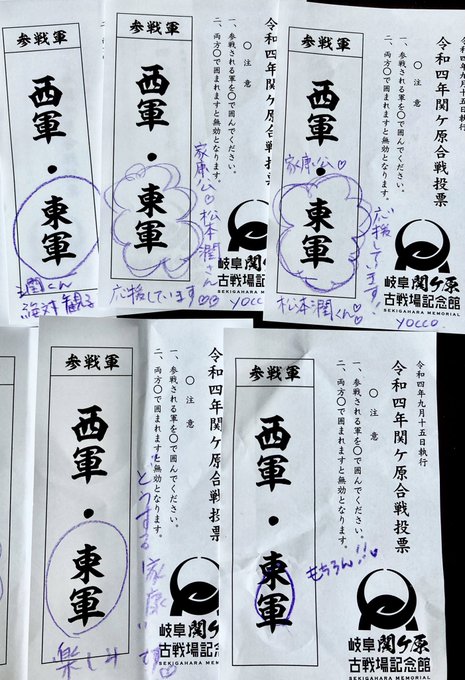 参戦軍
西軍・東軍
潤くん
絶対観る
参戦軍
西軍・東軍
家康公♡松本潤さん
応援しています♡♡
yocco
令和四年関ケ原合戦投票
〇注意
一、参戦される軍を〇で囲んでください。
二、両方〇で囲まれますと無効となります。
岐阜関ケ原
古戦場記念館
SEKIGAHARA MEMORIAL
参戦軍
西軍・東軍
家康公♡
松本潤くん♡
応援しています!
yocco.
令和四年九月十五日執行
令和四年関ケ原合戦投票
〇注意
一、参戦される軍を〇で囲んでください。
二、両方〇で囲まれますと無効となります。
岐阜関ケ原
古戦場記念館
SEKIGAHARA MEMORIAL
参戦軍
西軍・東軍
どうする家康
楽しみ
です♡
令和四年関ケ原合戦投票
〇注意
一、参戦される軍を〇で囲んでください。
二、両方〇で囲まれますと無効となります。
岐阜関ケ原
古戦場記念館
SEKIGAHARA MEM
参戦軍
西軍・東軍
もちろん!!♡
令和四年九月十五日執行
令和四年関ケ原合戦投票
〇注意
一、参戦される軍を〇で囲んでください。
二、両方〇で囲まれますと無効となります。
岐阜関ケ原
古戦場記念館
SEKIGAHARA MEMORIAL